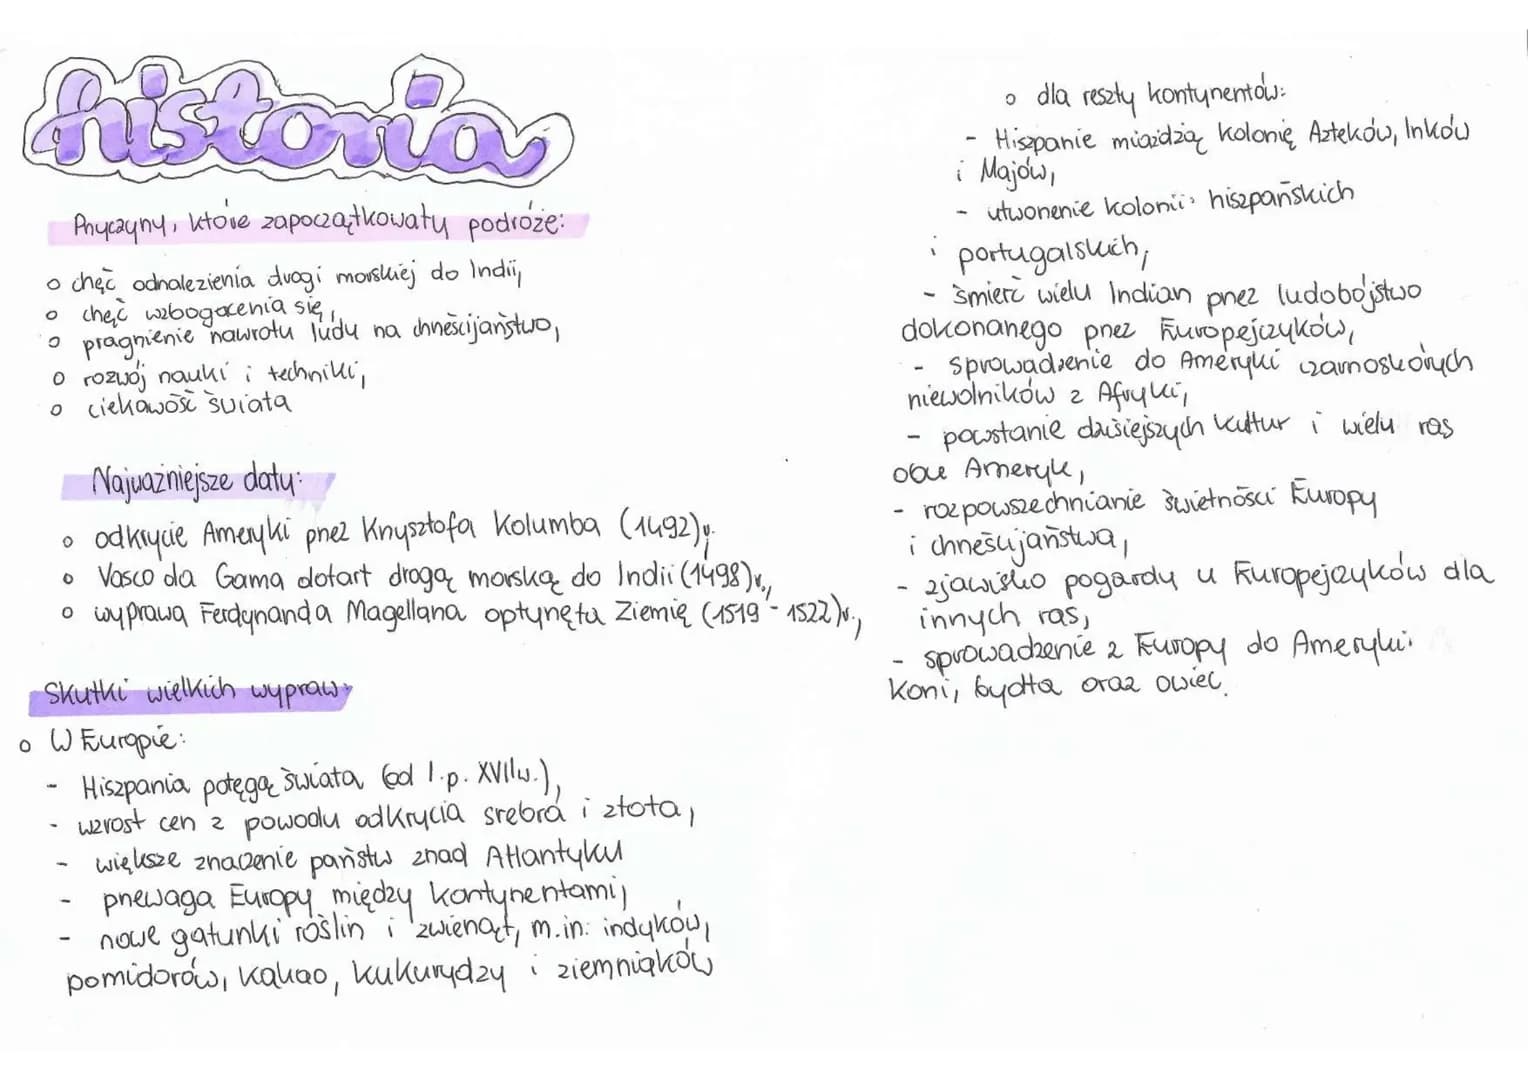 historia
Przyczyny, które zapoczątkowały podróże:
o chęć odnalezienia drogi morskiej do Indii,
o chęć wzbogacenia się,
o pragnienie nawrotu ludu na chrześcijaństwo,
o rozwój nauki i techniki,
o ciekawość świata
Najważniejsze daty:
o odkrycie Ameryki przez Krzysztofa Kolumba (1492)r.
o Vasco da Gama dotarł drogą morską do Indii (1498)r.,
o wyprawa Ferdynanda Magellana opłynęła Ziemię (1519 - 1522)r.,
Skutki wielkich wypraw:
o W Europie:
- Hiszpania potęgą świata (od I.p. XVIIw.),
- wzrost cen z powodu odkrycia srebra i złota,
- większe znaczenie państw znad Atlantyku
- przewaga Europy między kontynentami,
- nowe gatunki roślin i zwierząt, m.in: indyków,
pomidorów, kakao, kukurydzy i ziemniaków
o dla reszty kontynentów:
- Hiszpanie miażdżą kolonię Azteków, Inków
i Majów,
- utworzenie kolonii: hiszpańskich
i portugalskich,
- śmierć wielu Indian przez ludobójstwo
dokonanego przez Europejczyków,
- sprowadzenie do Ameryki czarnoskórych
niewolników z Afryki,
- powstanie dzisiejszych kultur i wielu ras
obu Ameryk,
- rozpowszechnianie świetności Europy
i chrześcijaństwa,
- zjawisko pogardy u Europejczyków dla
innych ras,
- sprowadzenie z Europy do Ameryki:
koni, bydła oraz owiec.